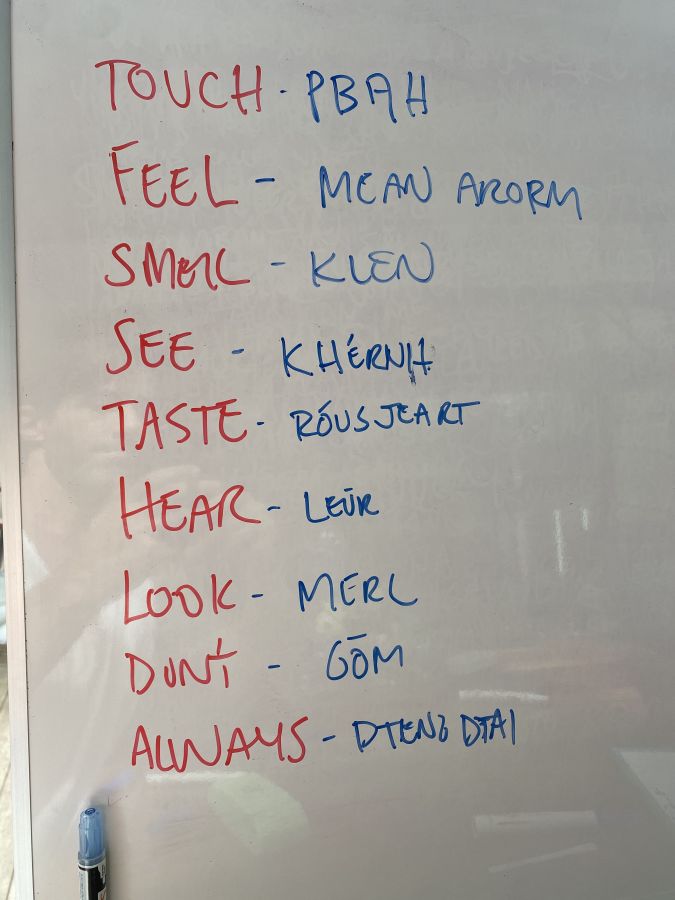 TOUCH - PBAH
FEEL - MEAN ARORM
SMELL - KLEN
SEE - KHÉRNH
TASTE - RÓUSJEART
HEAR - LEŪR
LOOK - MERL
DON'T - GŌM
ALWAYS - DTENG DTAI